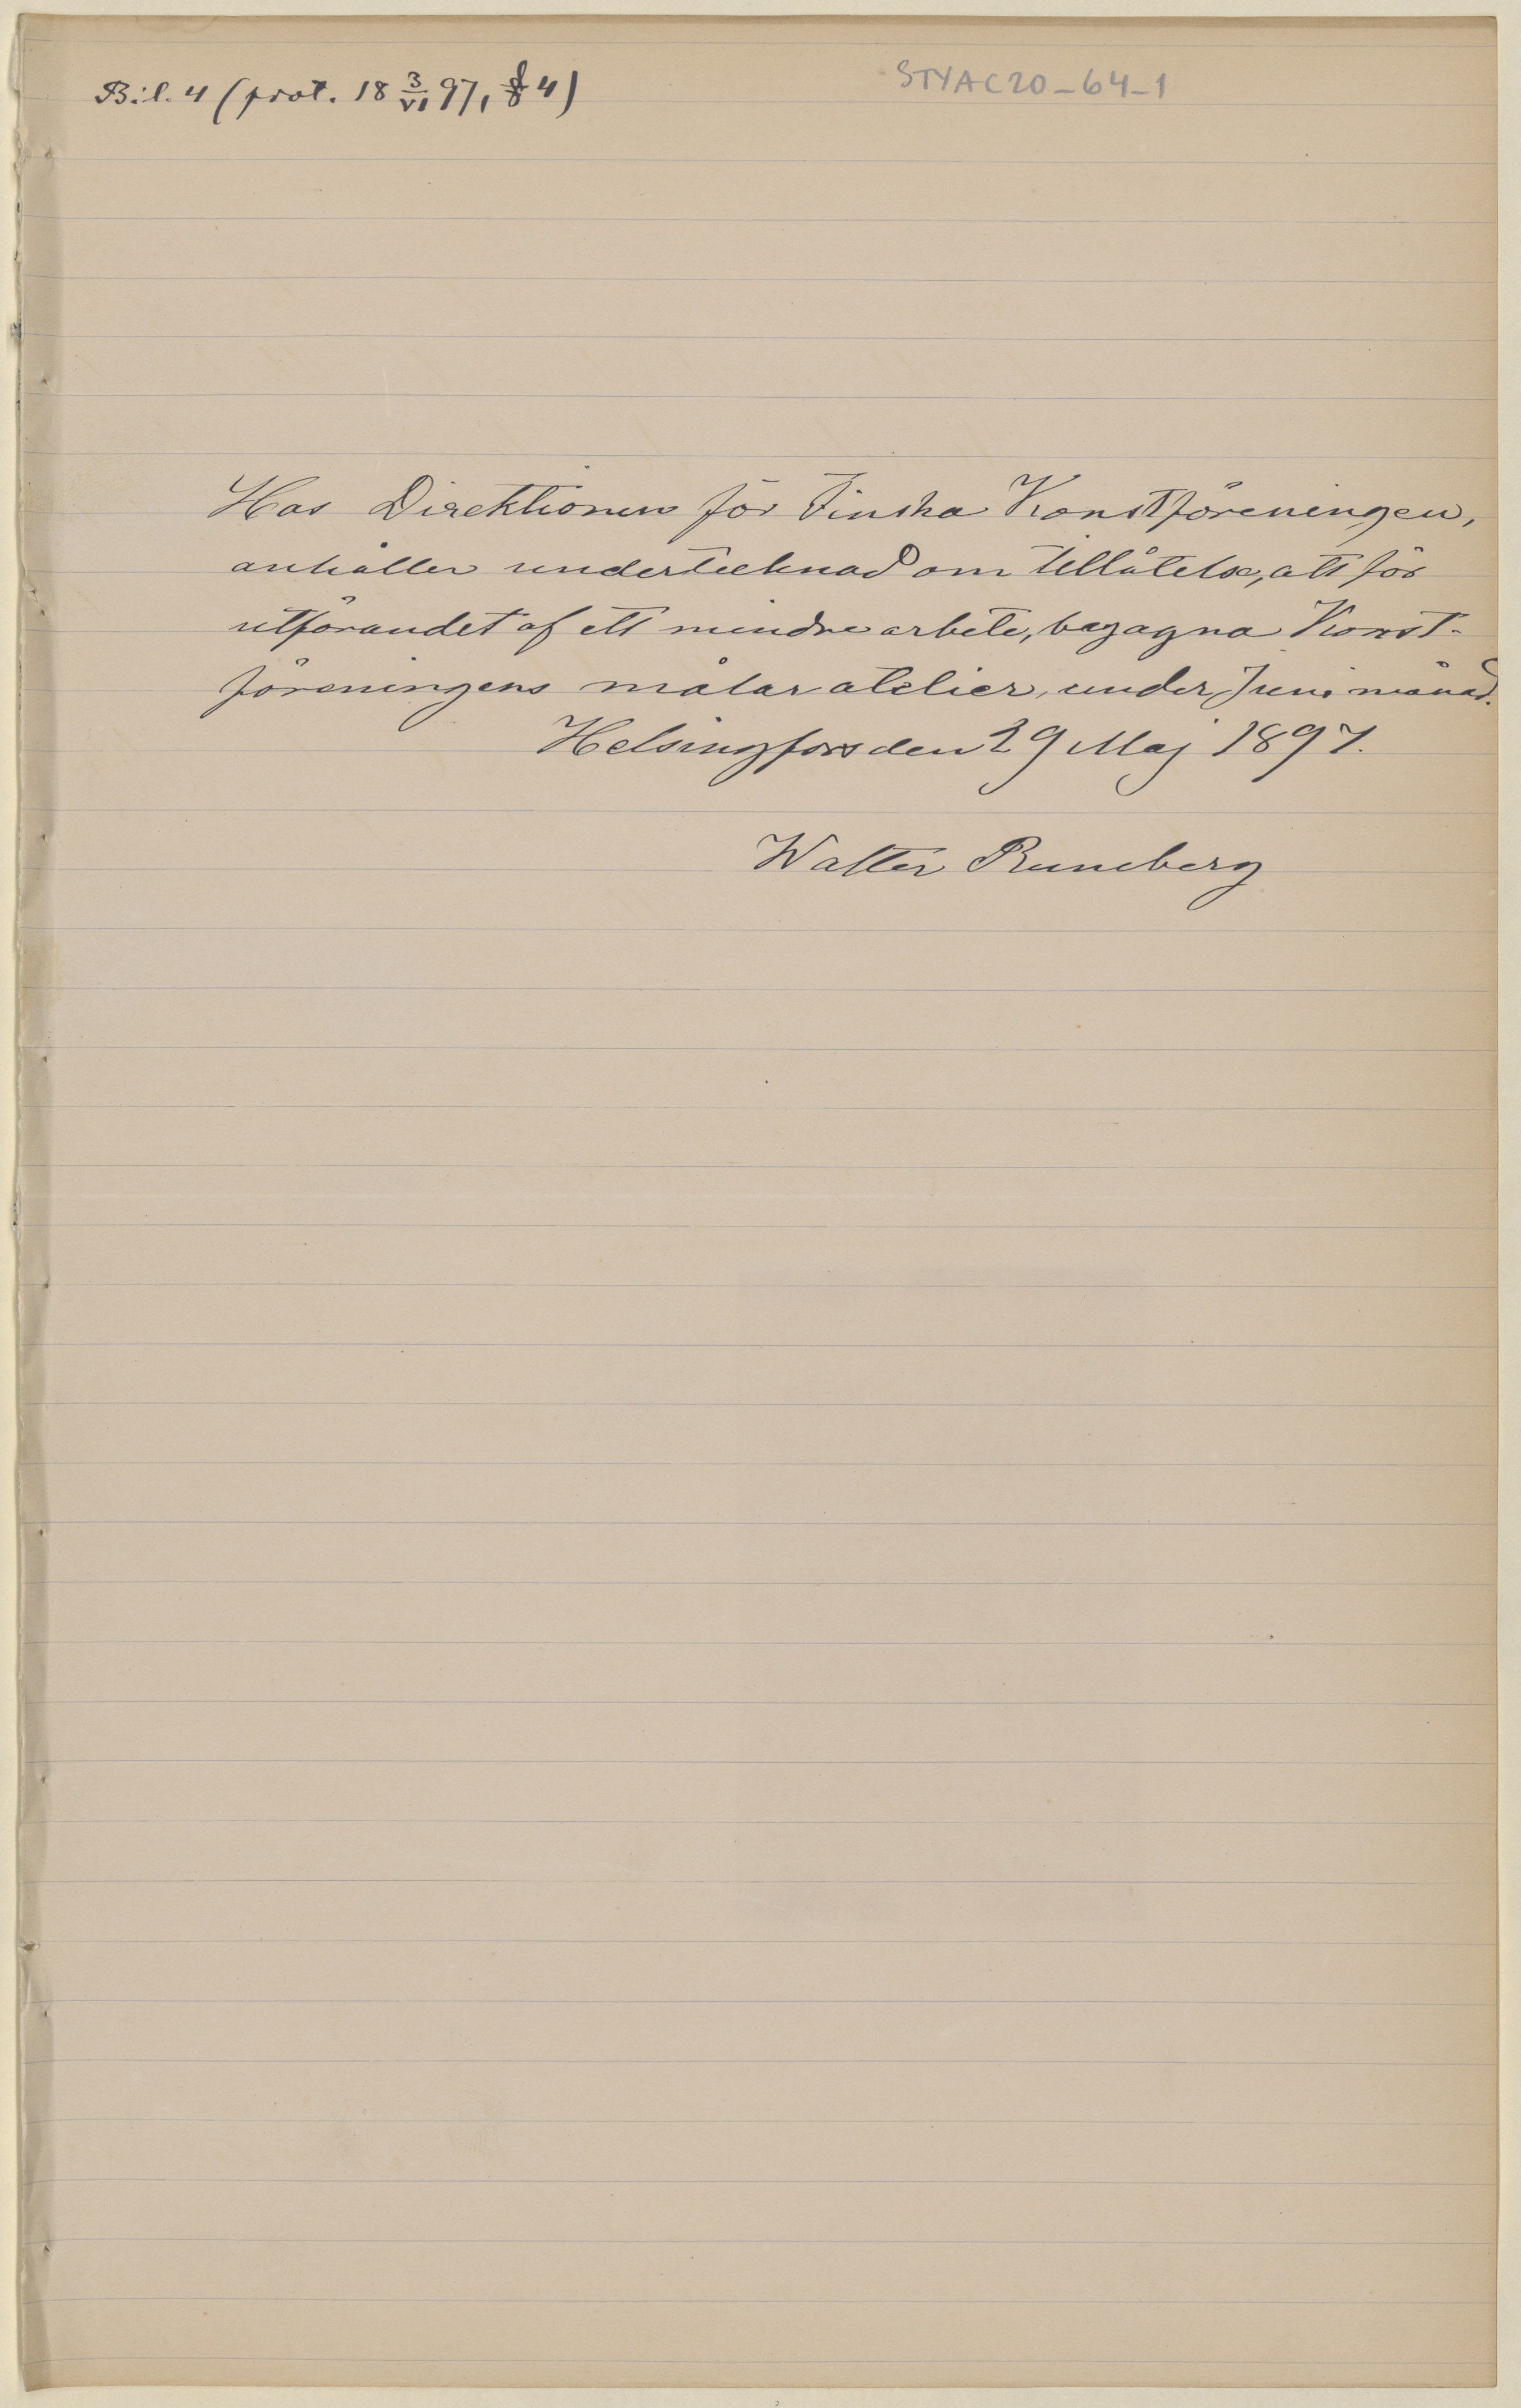 Bil. 4 (prot. 18 3/VI 97, § 4)
STYAC20-64-1
Hos Direktionen för Finska Konstföreningen,
anhåller undertecknad om tillåtelse, att för
utförandet af ett mindre arbete, begagna Konst-
föreningens målar atelier, under Juni månad.
Helsingfors den 29 Maj 1897.
Walter Runeberg